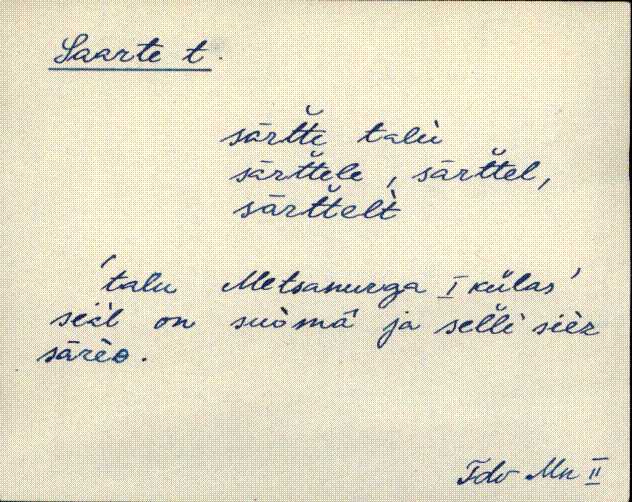 Saarte t.
sār̆tte talù
sār̆ttele, sār̆ttel,
sār̆ttelt
'talu Metsanurga I külas'
seäl on suòmà ja sel̆lì sièz
sārèo.
Tdv Mn II